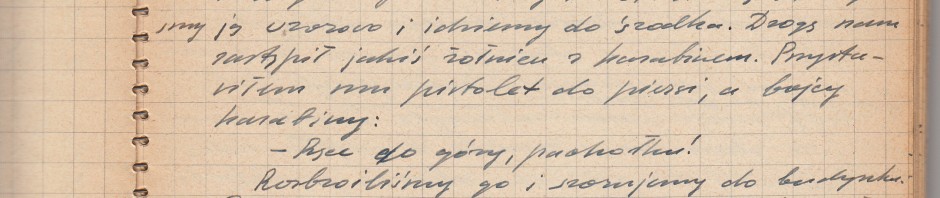 my ją wzorowo i idziemy do środka. Drogę nam
zastąpił jakiś żołnierz z karabinem. Przysta-
wiłem mu pistolet do piersi, a bojcy
karabiny:
– Ręce do góry, pachołku!
Rozbroiliśmy go i szorujemy do budynku.